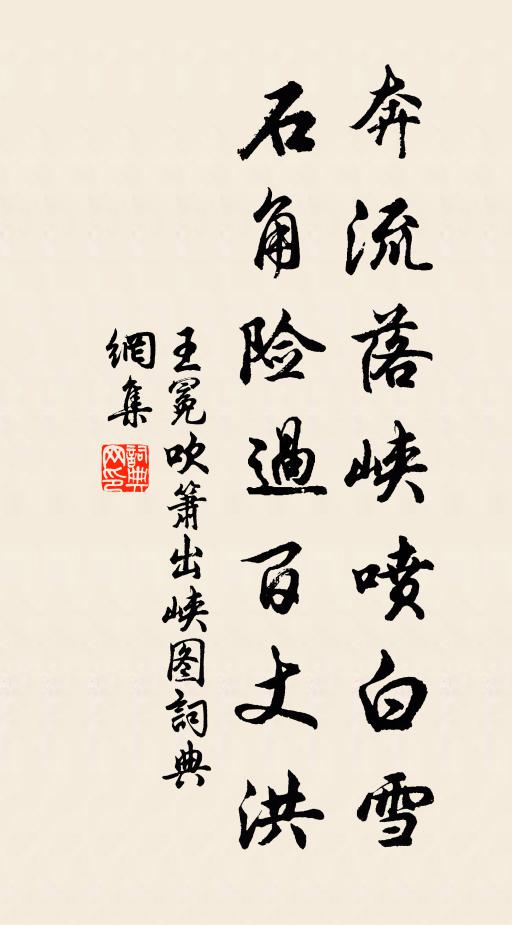 奔流落峡喷白雪
石角险過百丈洪
王冕吹簫出峡图詞典
網集
詞典
网印